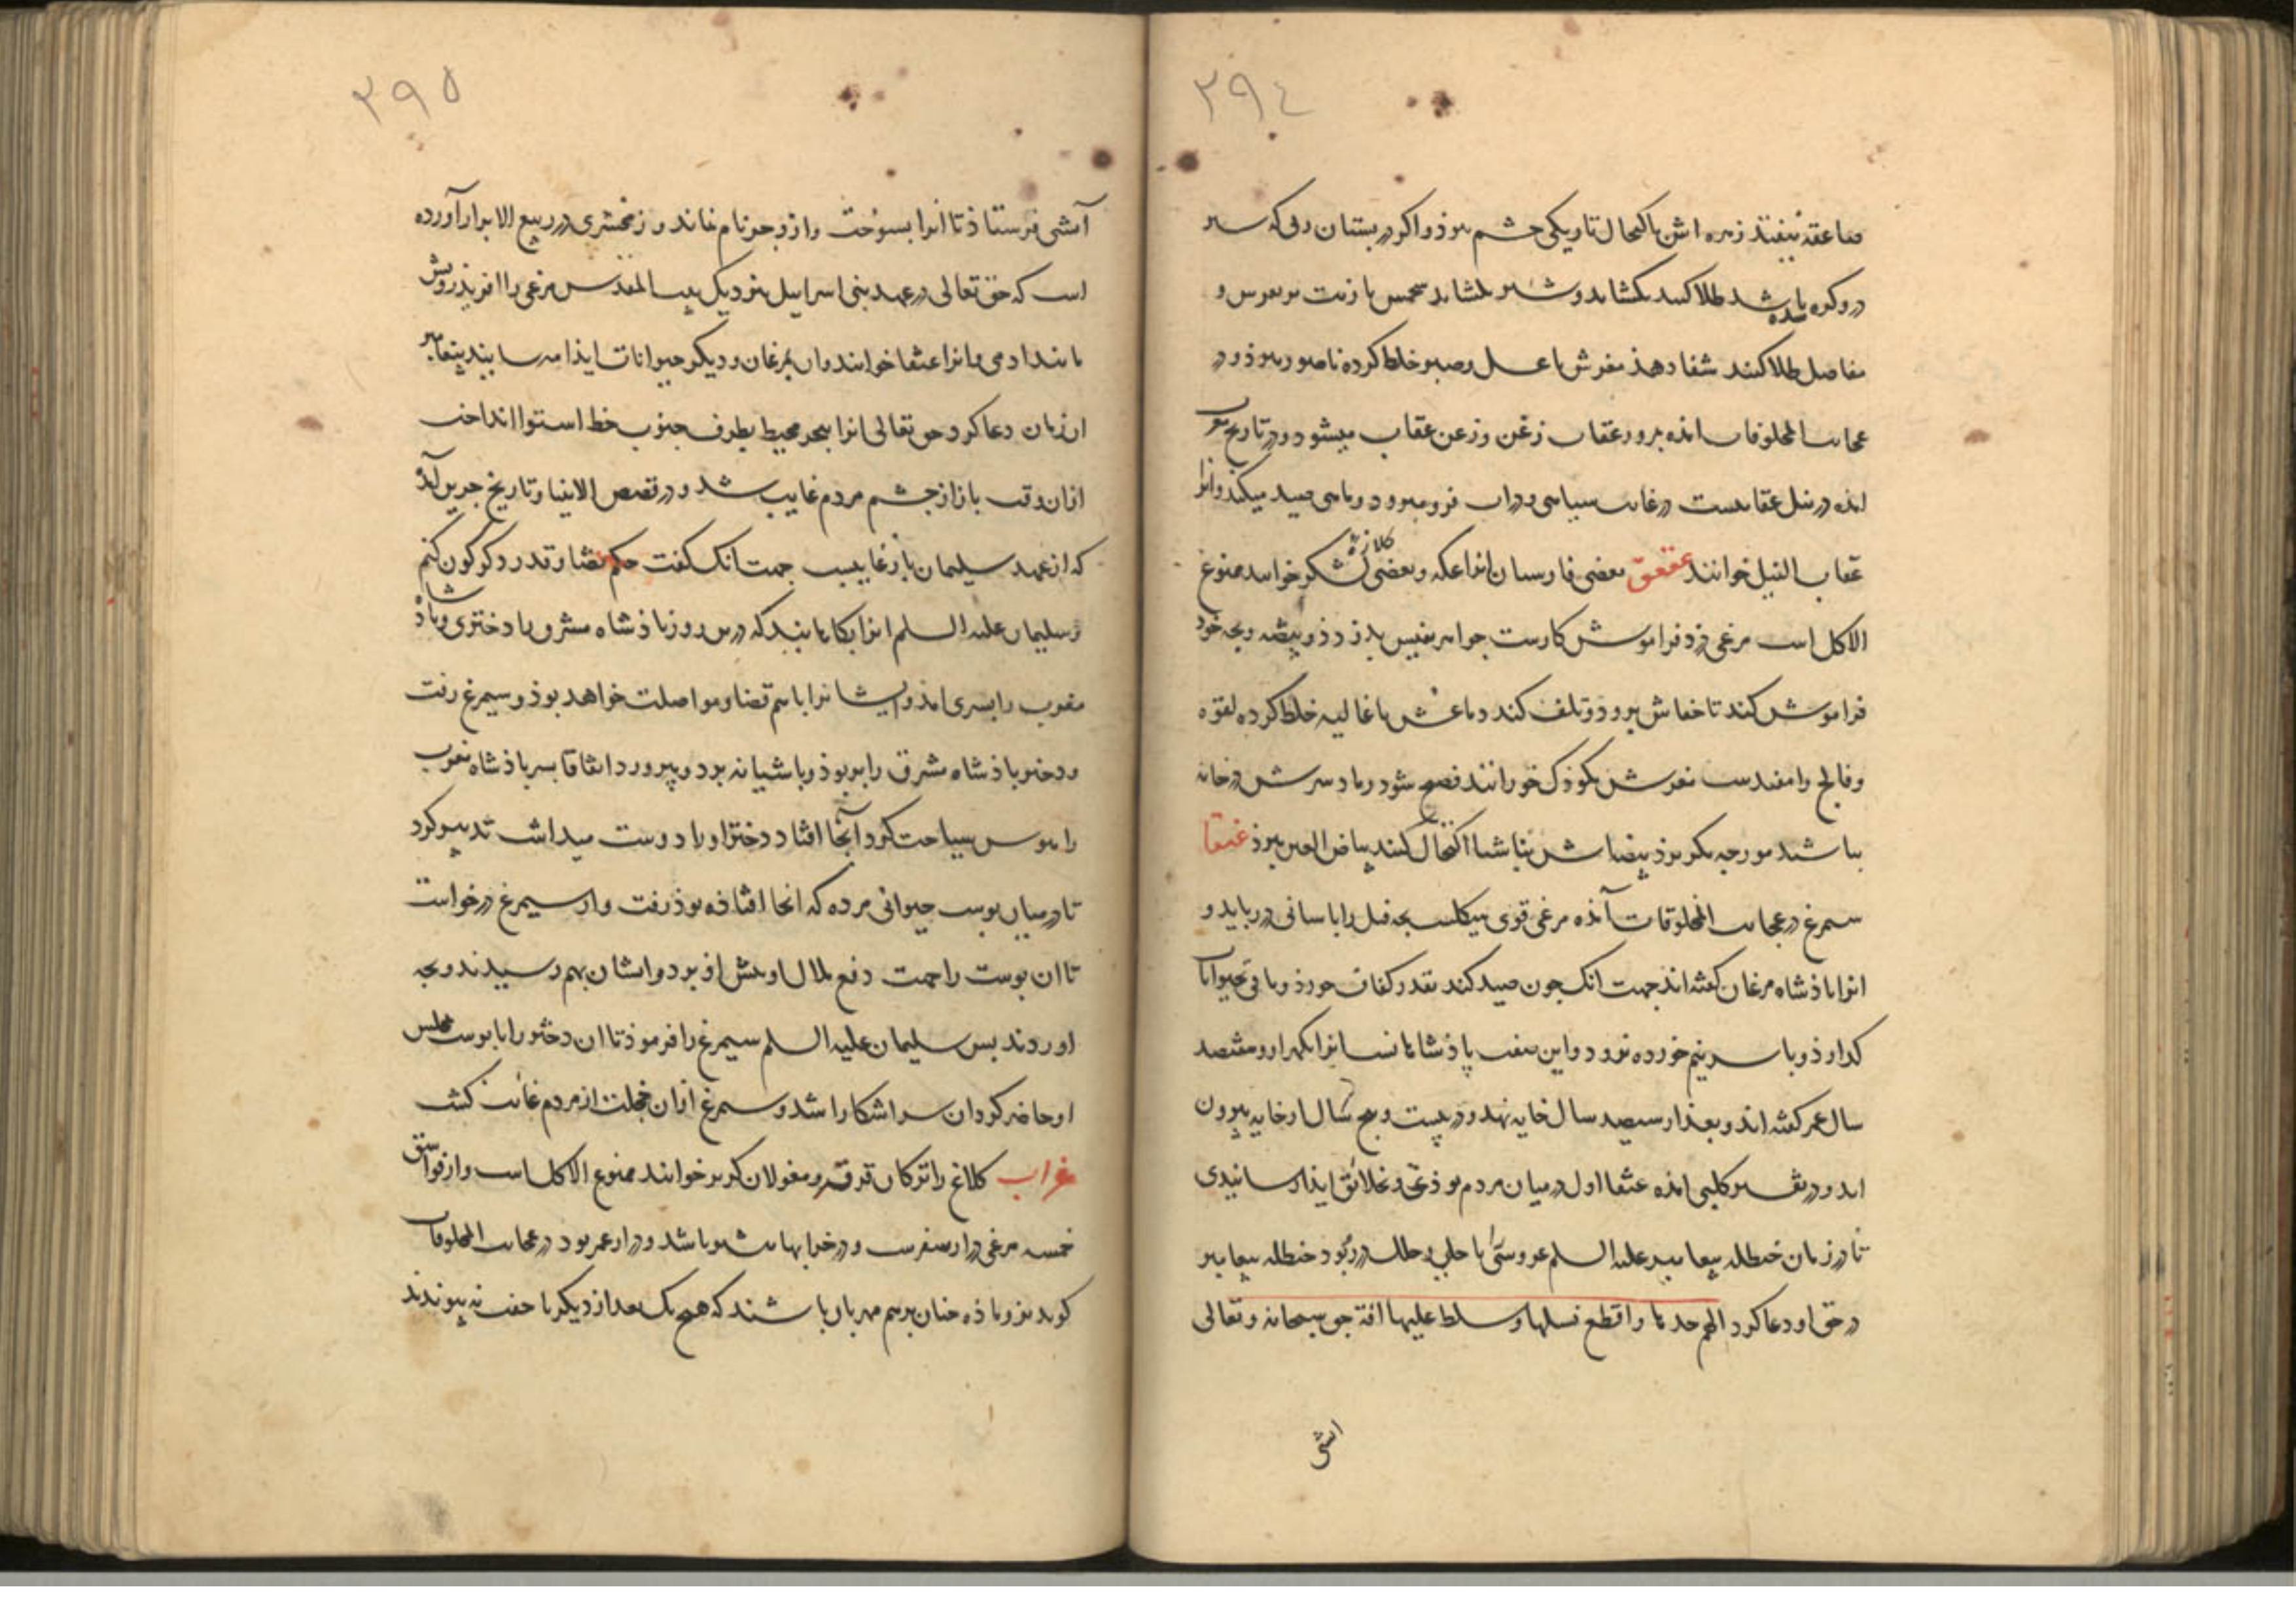 ٢٩٤
صاعقه نیفتد زهره اش باکتحال تاریکی چشم ببرذ و اکر در پستان زنی که شیر
درو کره شده باشد طلا کنند بکشاید و شیر بکشاید شحمش با زیت بر نقرس و
مفاصل طلا کنند شفا دهذ مغزش با عسل و صبر خلط کرده ناصور ببرذ و در
عجایب المخلوقات امذه بروز عقاب زغن و زغن عقاب میشود و در تاریخ مغرب
امذه در نیل عقابیست در غایت سیاهی در اب فرو میرود و ماهی صید میکند و انرا
عقاب النیل خوانند عقعق بعضی فارسیان انرا عکه و بعضی کلاژه لشکر خوانند ممنوع
الاکل است مرغی دزد فراموش کارست جواهر نفیس بدزدذ و بیضه و بچه خود
فراموش کند تا خفاش برود و تلف کند دماغش با غالیه خلط کرده لقوه
و فالج را مفیدست مغزش بکوذک خورانند فصیح شود رماد سرش در خانه
بپاشند مورچه بکریزذ بیضاش بناشتا اکتحال کنند بیاض العین ببرذ عنقا
سیمرغ در عجایب المخلوقات آمذه مرغی قوی هیکلست بچه فیل را باسانی در رباید و
انرا باذشاه مرغان کفته اند جهت انک چون صید کند بقدر کفاف خورذ و باقی بحیوانات
کذارذ و با سر نیم خورده نرود و این صفت پاذشاهانست انرا یکهزار و هفتصد
سال عمر کفته اند و بعذ از سیصد سال خایه نهد و در بیست و پنج سال از خایه بیرون
اید و در تفسیر کلبی امذه عنقا اول در میان مردم بوذی و خلائق ایذا رسانیدی
تا در زمان حنظله پیغامبر علیه السلم عروسی با حلی و حلل در ربود حنظله پیغامبر
در حق او دعا کرد اللهم خذها واقطع نسلها وسلط علیها افة حق سبحانه و تعالی
اتشی
٢٩٥
آتشی فرستاذ تا انرا بسوخت و ازو جز نام نماند و زمخشری در ربیع الابرار آورده
است که حق تعالی در عهد بنی اسراییل بنزدیک بیت المقدس مرغی را افرید رویش
مانند ادمی و انرا عنقا خوانند و ان بمرغان و دیکر حیوانات ایذا میرسانید پیغامبر
ان زمان دعا کرد حق تعالی انرا ببحر محیط بطرف جنوب خط استوا انداخت
ازان وقت باز از چشم مردم غایب شد و در قصص الانبیا و تاریخ جریر آمذه
که از عهد سلیمان باز غایبست جهت انک کفت حکم قضا و قدر دکرکون کنم
و سلیمان علیه السلم انرا بکا باینید که درین روز باذشاه مشرق را دختری و باذشاه
مغرب را پسری امذ و ایشانرا باهم قضا و مواصلت خواهد بوذ و سیمرغ رفت
و دختر باذشاه مشرق را بربوذ و باشیانه برد و بپرورد اتفاقا پسر باذشاه مغرب
را هوس سیاحت کرد آنجا افتاد دختر او را دوست میداشت تدبیر کرد
تا در میان پوست حیوانی مرده که انجا افتاذه بوذ رفت و از سیمرغ درخواست
تا ان پوست را جهت دفع ملال او پیش او برد و ایشان بهم رسیدند و بچه
اوردند پس سلیمان علیه السلم سیمرغ را فرموذ تا ان دختر را با پوست بمجلس
او حاضر کرد ان سر اشکارا شد و سیمرغ ازان خجلت از مردم غائب کشت
غراب کلاغ را ترکان قرقه و مغولان کریر خوانند ممنوع الاکل است و از فواسق
خمسه مرغی دراز سفرست و در خرابها بیشتر باشد و دراز عمر بود در عجایب المخلوقات
کوید نر و ماذه چنان برهم مهربان باشند که هیچ یک بعد از دیکر با جفت نه پیوندند